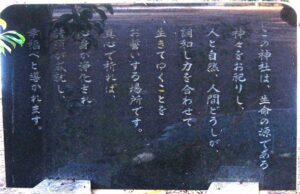 この神社は、生命の源である
神々をお祀りし、
人と自然、人間どうしが、
調和し力を合わせて
生きていくことを
お誓いする場所です。
真心で祈れば、
心身が浄化され
諸願が成就し、
幸福へと導かれます。